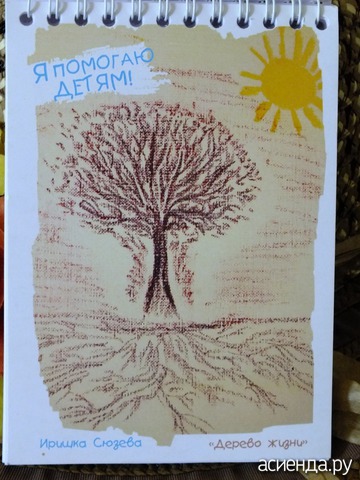 Я ПОМОГАЮ
ДЕТЯМ!
Иришка Сюзева
"Дерево жизни"
асиенда.ру